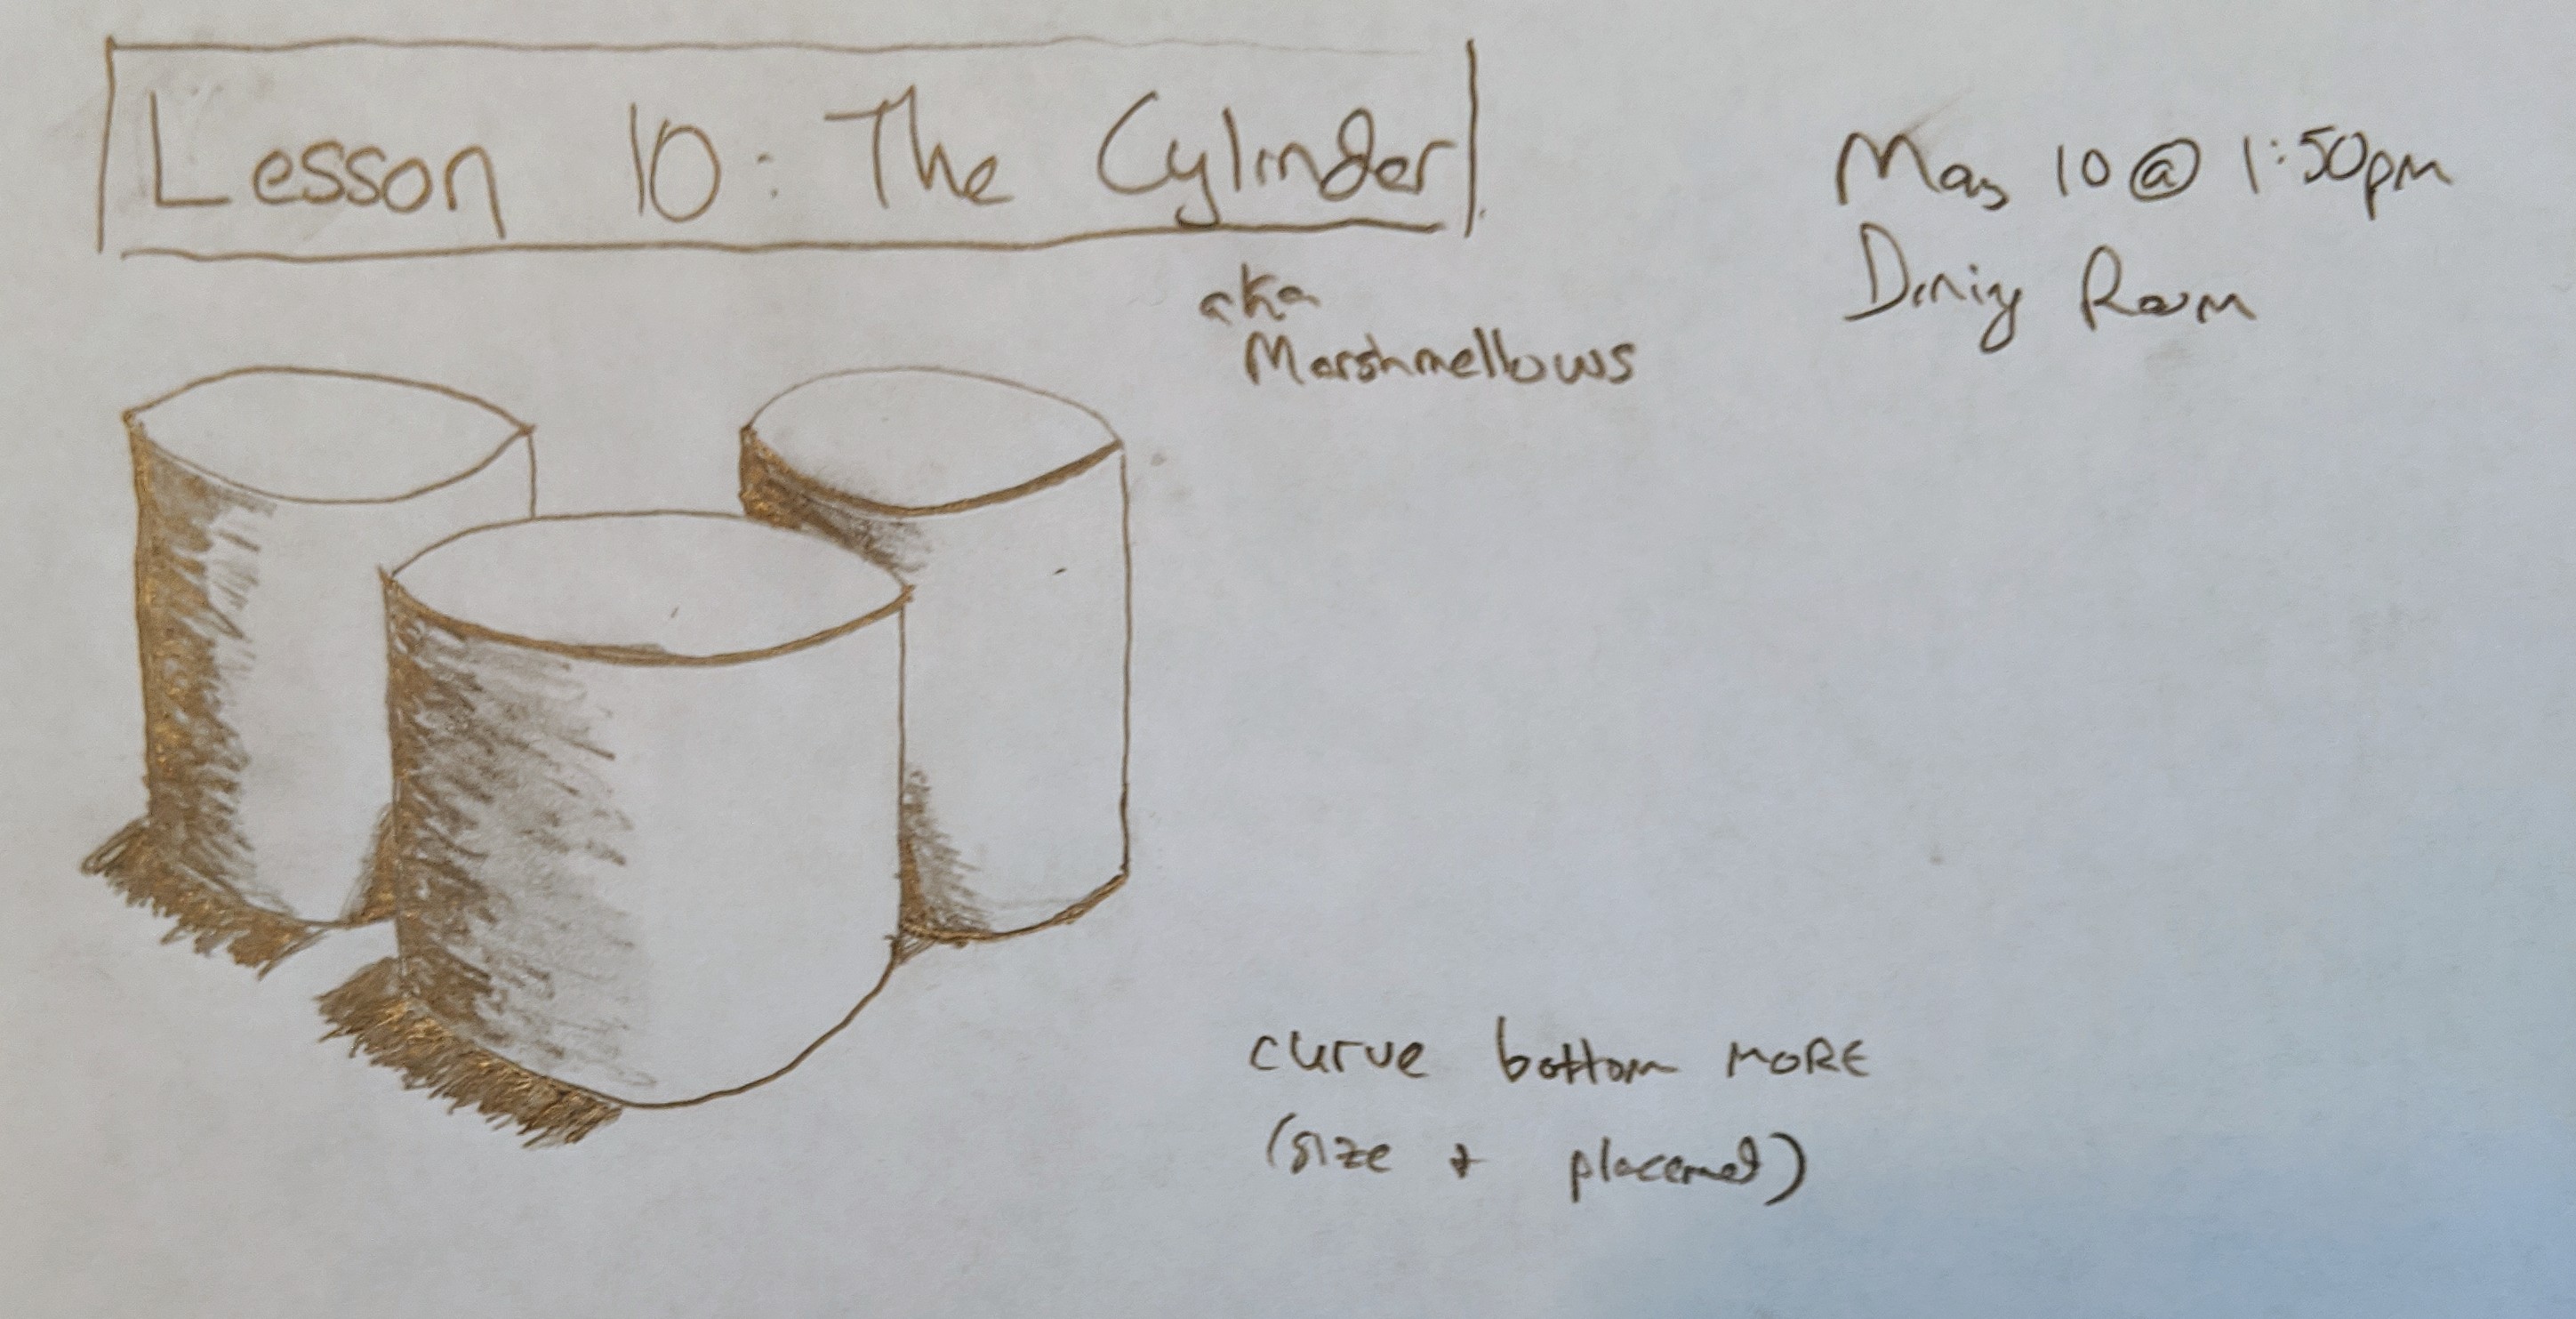 Lesson 10: The Cylinder
aka
Marshmellows
May 10 @ 1:50pm
Dining Room
curve bottom MORE
(size + placement)